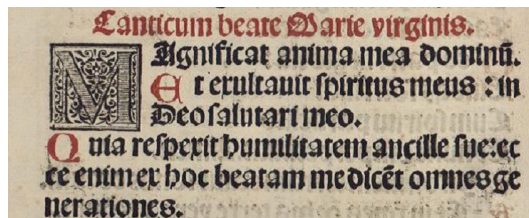 Canticum beate Marie virginis.
MAgnificat anima mea dominū.
Et exultauit ſpiritus meus : in
Deo ſalutari meo.
Quia reſpexit humilitatem ancille ſue: ec
ce enim ex hoc beatam me dicēt omnes ge
nerationes.